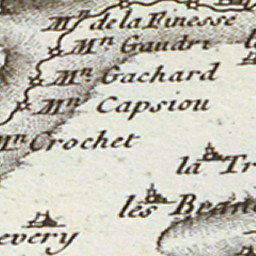 Mn. de la Finesse
Mn. Gaudri
Mn. Gachard
Mn. Capsiou
Mn. Crochet
la Tr
les Beau
every